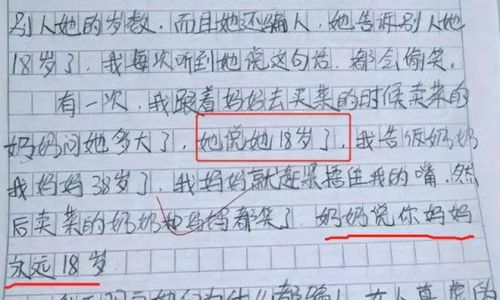 别人她的岁数，而且她还骗人，她告诉别人她
18岁了，我每次听到她说这句话，都会偷笑。
有一次，我跟着妈妈去买菜的时候卖菜的
奶奶问她多大了，她说她18岁了，我告饭奶奶
我妈妈38岁了，我妈妈就赶紧捂住我的嘴，然
后卖菜的奶奶和妈妈都笑了，奶奶说你妈妈
永远18岁